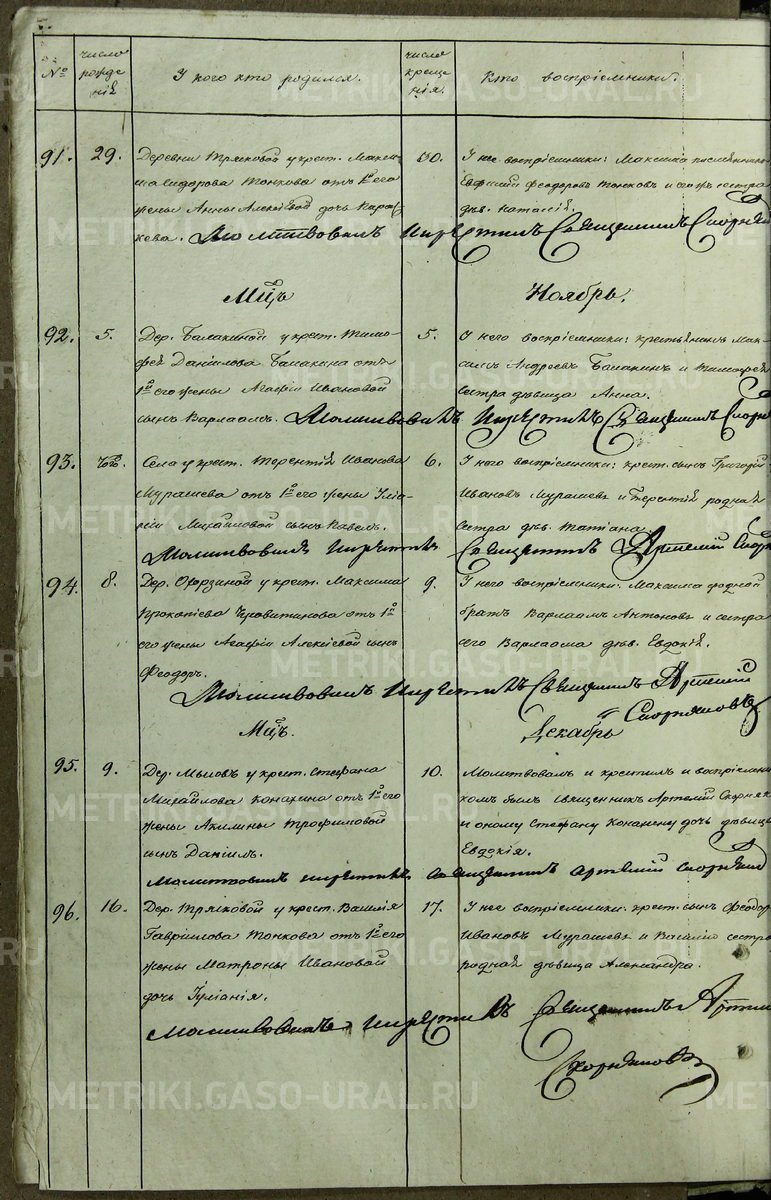 №
число рожде нія
У кого кто родился.
число креще нія.
Кто воспріемники.
91. 29. Деревни Тряпковой у крест. Макси-
ма Сидорова Тонкова отъ 1го его
жены Анны Алексѣевой дочь Парас-
кева.
30. У нее воспріемники: Максима
Евфимій Феодоровъ Тонковъ и сестра
дѣв. Наталія.
Молитвовалъ и крестилъ Священникъ
Мцъ Ноябрь.
92. 5. Дер. Балакиной у крест. Тимо-
фея Даніилова Балакина отъ
1й его жены Агафіи Ивановой
сынъ Варлаамъ.
5. У него воспріемники: крестьянинъ Мак-
симъ Андреевъ Балакинъ и Тимофея
сестра дѣвица Анна.
Молитвовалъ и крестилъ Священникъ
93. Села у крест. Терентія Иванова
Мурашева отъ 1й его жены Уліа-
ніи Михайловой сынъ Павелъ.
6. У него воспріемники: крест. сынъ Григорій
Ивановъ Мурашевъ и Терентія родная
сестра дѣв. Татіана.
Молитвовалъ и крестилъ Священникъ Артемій
94. 8. Дер. у крест. Максима
Прокопіева отъ 1й
его жены Агафіи Алексіевой сынъ
Феодоръ.
9. У него воспріемники: Максима родной
братъ Варлаамъ Антоновъ и сестра
его Варлаама дѣв. Евдокія.
Молитвовалъ и крестилъ Священникъ Артемій
Скорняковъ
Мцъ. Декабрь
95. 9. Дер. у крест. Стефана
Михайлова Конахина отъ 1й его
жены Акилины Трофимовой
сынъ Даніилъ.
10. Молитвовалъ и крестилъ и воспріемни
комъ былъ священникъ Артемій Скорняк
и оному Стефану дочь дѣвица
Евдокія.
Молитвовалъ и крестилъ Священникъ Артемій
96. 16. Дер. Тряпковой у крест. Василія
Гавріилова Тонкова отъ 1й его
жены Матроны Ивановой
дочь Іуліанія.
17. У нее воспріемники: крест. сынъ Феодоръ
Ивановъ Мурашевъ и Василія сестра
родная дѣвица Александра.
Молитвовалъ и крестилъ Священникъ
Скорняковъ
METRIKI.GASO-URAL.RU